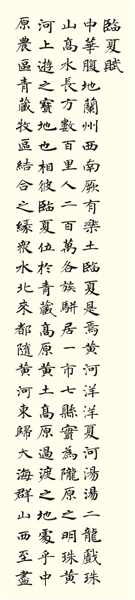 臨夏賦
中華腹地蘭州西南厥有樂土臨夏是焉黃河洋洋夏河湯湯二龍戲珠
山高水長方數百里人二百萬各族駢居一市七縣實為隴原之明珠黃
河上遊之寶地也相彼臨夏位於青藏高原黃土高原過渡之地處乎中
原農區青藏牧區結合之緣衆水北來都隨黃河東歸大海群山西至盡